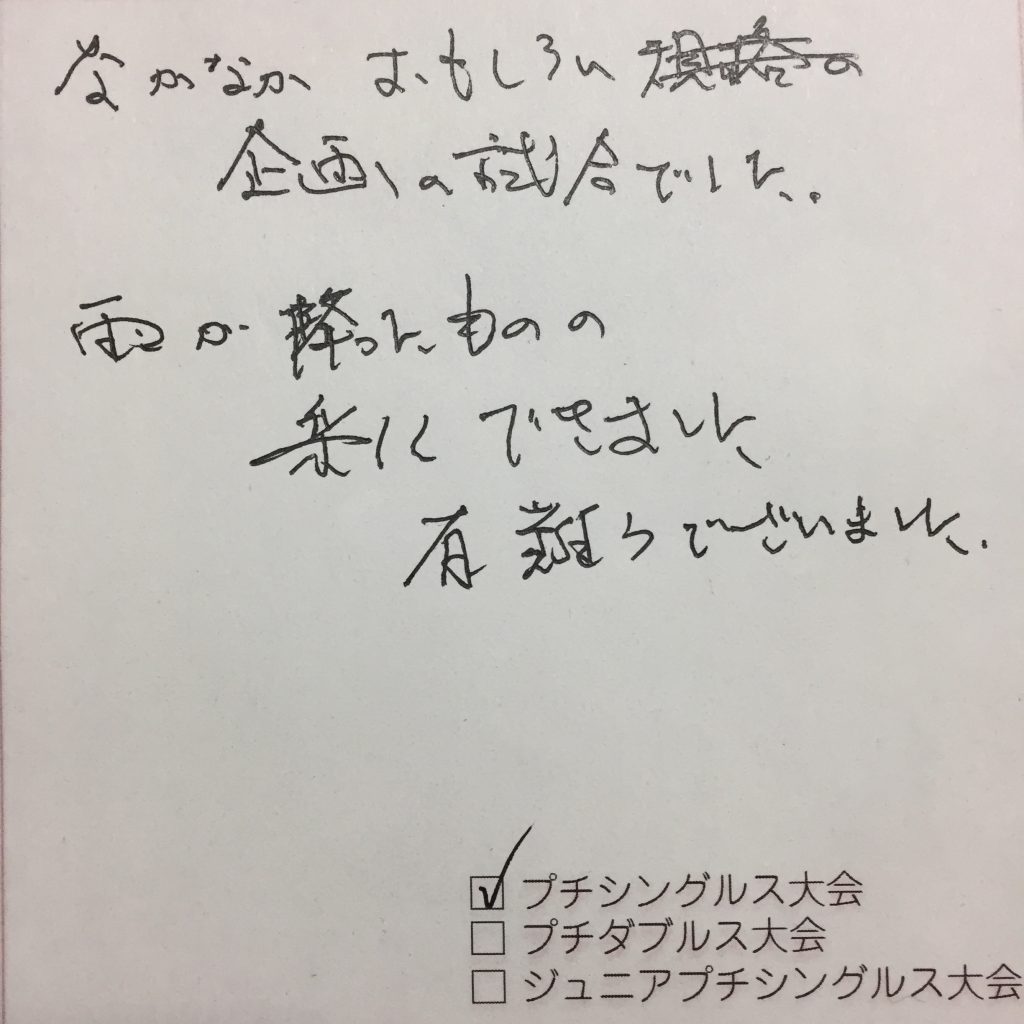 なかなか おもしろい 規格の
企画の試合でした。
雨が降ったものの
楽にできました
有難うございました。
☑ プチシングルス大会
□ プチダブルス大会
□ ジュニアプチシングルス大会